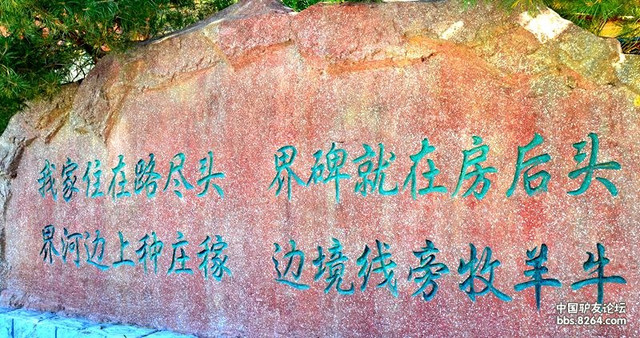 我家住在路尽头 界碑就在房后头
界河边上种庄稼 边境线旁牧羊牛
中国驴友论坛
bbs.8264.com